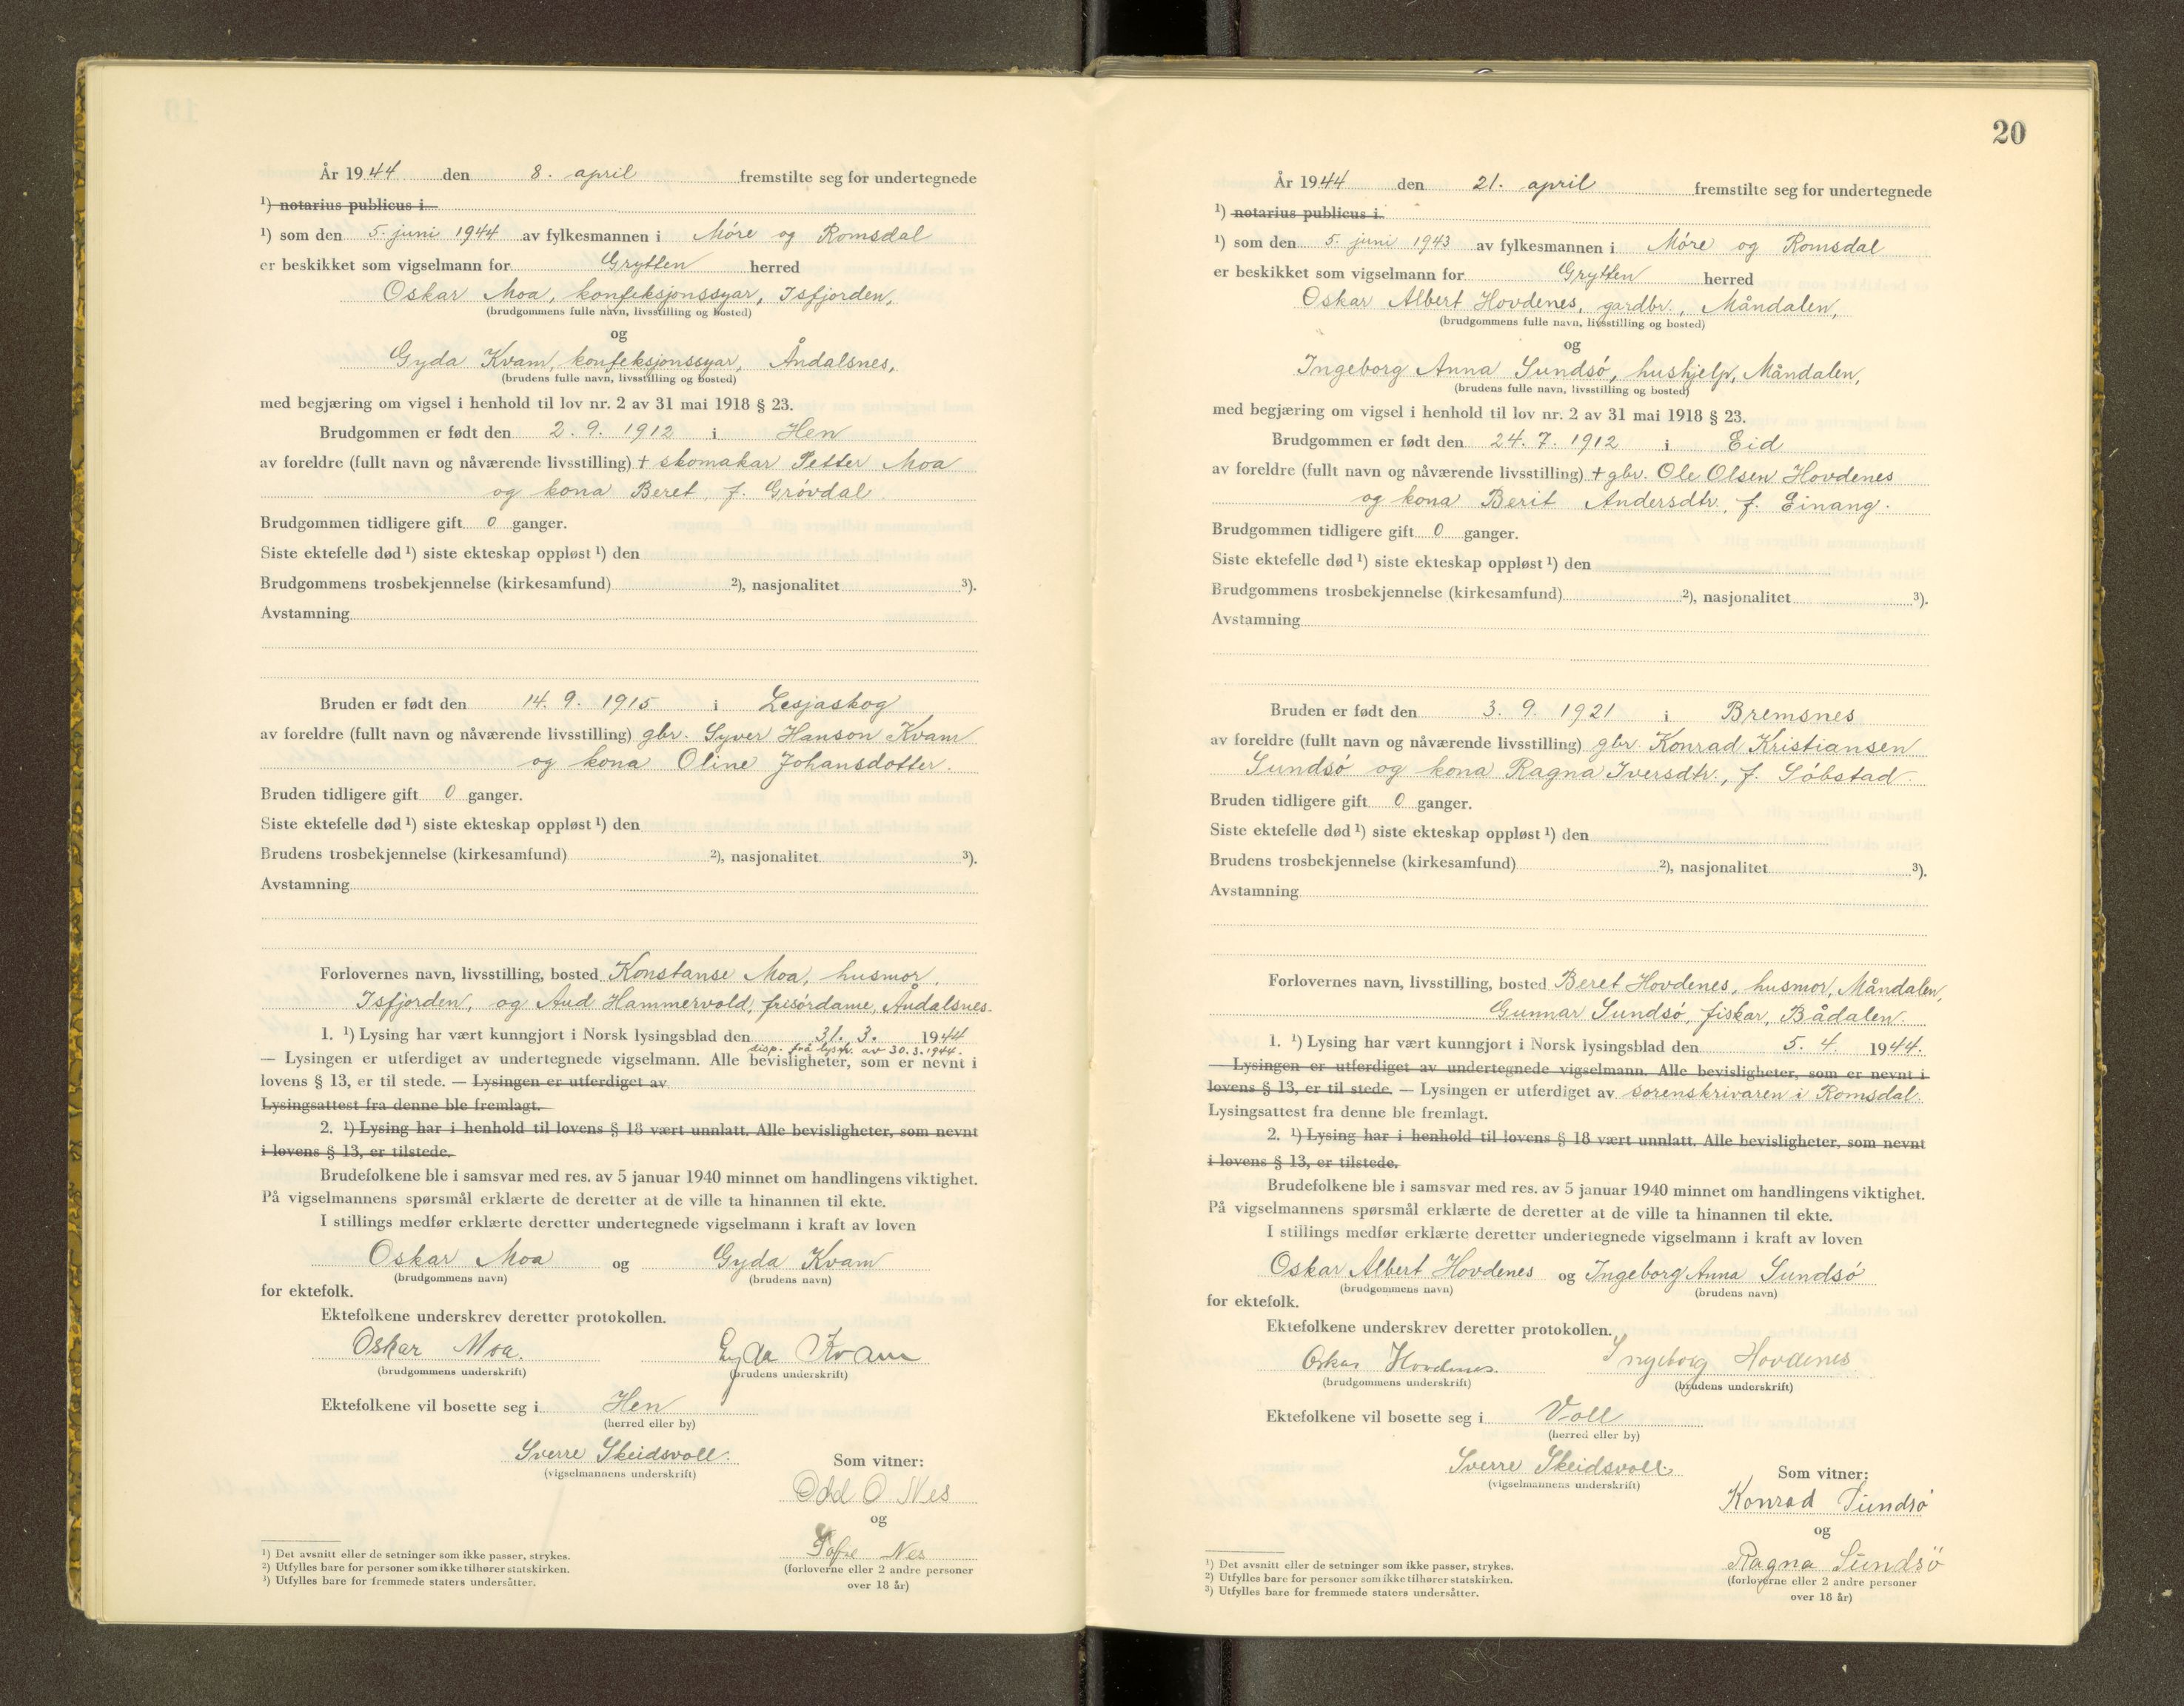 År 1944 den 8. april fremstilte seg for undertegnede
¹) notarius publicus i
¹) som den 5. juni 1944 av fylkesmannen i Møre og Romsdal
er beskikket som vigselmann for Grytten herred
Oskar Moa, konfeksjonssyar, Isfjorden,
(brudgommens fulle navn, livsstilling og bosted)
og
Gyda Kvam, konfeksjonssyar, Åndalsnes,
(brudens fulle navn, livsstilling og bosted)
med begjæring om vigsel i henhold til lov nr. 2 av 31 mai 1918 § 23.
Brudgommen er født den 2. 9. 1912 i Hen
av foreldre (fullt navn og nåværende livsstilling) + skomakar Petter Moa
og kona Beret, f. Grøvdal.
Brudgommen tidligere gift 0 ganger.
Siste ektefelle død ¹) siste ekteskap oppløst ¹) den
Brudgommens trosbekjennelse (kirkesamfund) ²), nasjonalitet ³).
Avstamning
Bruden er født den 14. 9. 1915 i Lesjaskog
av foreldre (fullt navn og nåværende livsstilling) gbr. Syver Hanson Kvam
og kona Oline Johansdotter.
Bruden tidligere gift 0 ganger.
Siste ektefelle død ¹) siste ekteskap oppløst ¹) den
Brudens trosbekjennelse (kirkesamfund) ²), nasjonalitet ³).
Avstamning
Forlovernes navn, livsstilling, bosted Konstanse Moa, husmor,
Isfjorden, og Aud Hammervold, frisørdame, Åndalsnes.
1. ¹) Lysing har vært kunngjort i Norsk lysingsblad den 31. 3. 1944
disp. frå lystr. av 30.3.1944.
— Lysingen er utferdiget av undertegnede vigselmann. Alle bevisligheter, som er nevnt i
lovens § 13, er til stede. — Lysingen er utferdiget av
Lysingsattest fra denne ble fremlagt.
2. ¹) Lysing har i henhold til lovens § 18 vært unnlatt. Alle bevisligheter, som nevnt
i lovens § 13, er tilstede.
Brudefolkene ble i samsvar med res. av 5 januar 1940 minnet om handlingens viktighet.
På vigselmannens spørsmål erklærte de deretter at de ville ta hinannen til ekte.
I stillings medfør erklærte deretter undertegnede vigselmann i kraft av loven
Oskar Moa og Gyda Kvam
(brudgommens navn) (brudens navn)
for ektefolk.
Ektefolkene underskrev deretter protokollen.
Oskar Moa. Gyda Kvam
(brudgommens underskrift) (brudens underskrift)
Ektefolkene vil bosette seg i Hen
(herred eller by)
Sverre Skeidsvoll.
(vigselmannens underskrift)
Som vitner:
Odd O Nes
og
Sofie Nes
(forloverne eller 2 andre personer
over 18 år)
¹) Det avsnitt eller de setninger som ikke passer, strykes.
²) Utfylles bare for personer som ikke tilhører statskirken.
³) Utfylles bare for fremmede staters undersåtter.
20
År 1944 den 21. april fremstilte seg for undertegnede
¹) notarius publicus i
¹) som den 5. juni 1943 av fylkesmannen i Møre og Romsdal
er beskikket som vigselmann for Grytten herred
Oskar Albert Hovdenes, gardbr., Måndalen,
(brudgommens fulle navn, livsstilling og bosted)
og
Ingeborg Anna Sundsø, hushjelp, Måndalen,
(brudens fulle navn, livsstilling og bosted)
med begjæring om vigsel i henhold til lov nr. 2 av 31 mai 1918 § 23.
Brudgommen er født den 24. 7. 1912 i Eid
av foreldre (fullt navn og nåværende livsstilling) + gbr. Ole Olsen Hovdenes
og kona Berit Andersdtr., f. Einang.
Brudgommen tidligere gift 0 ganger.
Siste ektefelle død ¹) siste ekteskap oppløst ¹) den
Brudgommens trosbekjennelse (kirkesamfund) ²), nasjonalitet ³).
Avstamning
Bruden er født den 3. 9. 1921 i Bremsnes
av foreldre (fullt navn og nåværende livsstilling) gbr. Konrad Kristiansen
Sundsø og kona Ragna Iversdtr., f. Søbstad.
Bruden tidligere gift 0 ganger.
Siste ektefelle død ¹) siste ekteskap oppløst ¹) den
Brudens trosbekjennelse (kirkesamfund) ²), nasjonalitet ³).
Avstamning
Forlovernes navn, livsstilling, bosted Beret Hovdenes, husmor, Måndalen,
Gunnar Sundsø, fiskar, Bådalen.
1. ¹) Lysing har vært kunngjort i Norsk lysingsblad den 5. 4. 1944.
— Lysingen er utferdiget av undertegnede vigselmann. Alle bevisligheter, som er nevnt i
lovens § 13, er til stede. — Lysingen er utferdiget av sorenskrivaren i Romsdal.
Lysingsattest fra denne ble fremlagt.
2. ¹) Lysing har i henhold til lovens § 18 vært unnlatt. Alle bevisligheter, som nevnt
i lovens § 13, er tilstede.
Brudefolkene ble i samsvar med res. av 5 januar 1940 minnet om handlingens viktighet.
På vigselmannens spørsmål erklærte de deretter at de ville ta hinannen til ekte.
I stillings medfør erklærte deretter undertegnede vigselmann i kraft av loven
Oskar Albert Hovdenes og Ingeborg Anna Sundsø
(brudgommens navn) (brudens navn)
for ektefolk.
Ektefolkene underskrev deretter protokollen.
Oskar Hovdenes. Ingeborg Hovdenes
(brudgommens underskrift) (brudens underskrift)
Ektefolkene vil bosette seg i Voll
(herred eller by)
Sverre Skeidsvoll.
(vigselmannens underskrift)
Som vitner:
Konrad Sundsø
og
Ragna Sundsö
(forloverne eller 2 andre personer
over 18 år)
¹) Det avsnitt eller de setninger som ikke passer, strykes.
²) Utfylles bare for personer som ikke tilhører statskirken.
³) Utfylles bare for fremmede staters undersåtter.